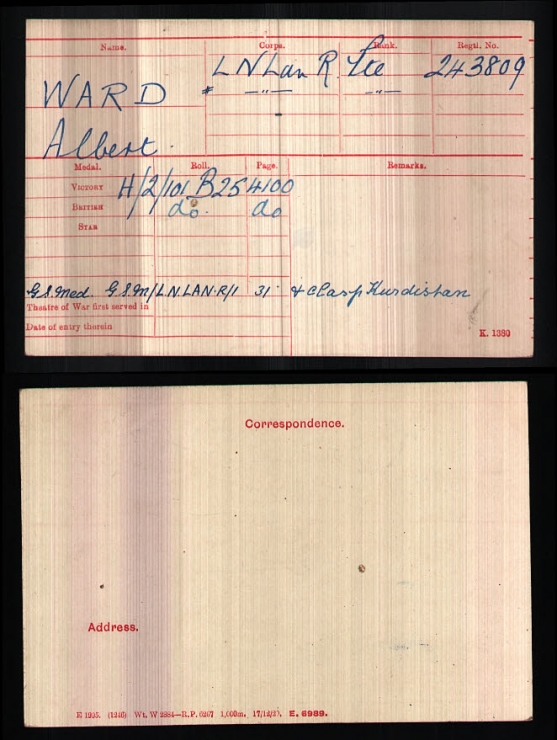 Name. Corps. Rank. Regtl. No.
WARD L N Lan R. Pte 243809
* —"— —"—
Albert.
Medal. Roll. Page. Remarks.
VICTORY H/2/101 B25 4100
BRITISH do. do
STAR
G.S.Med. G.S.M/L.N.LAN.R/1 31 & Clasp Kurdistan
Theatre of War first served in
Date of entry therein
K. 1380
Correspondence.
Address.
E 1935. (1246) Wt. W 2884—R.P. 6267 1,000m. E. 6989.